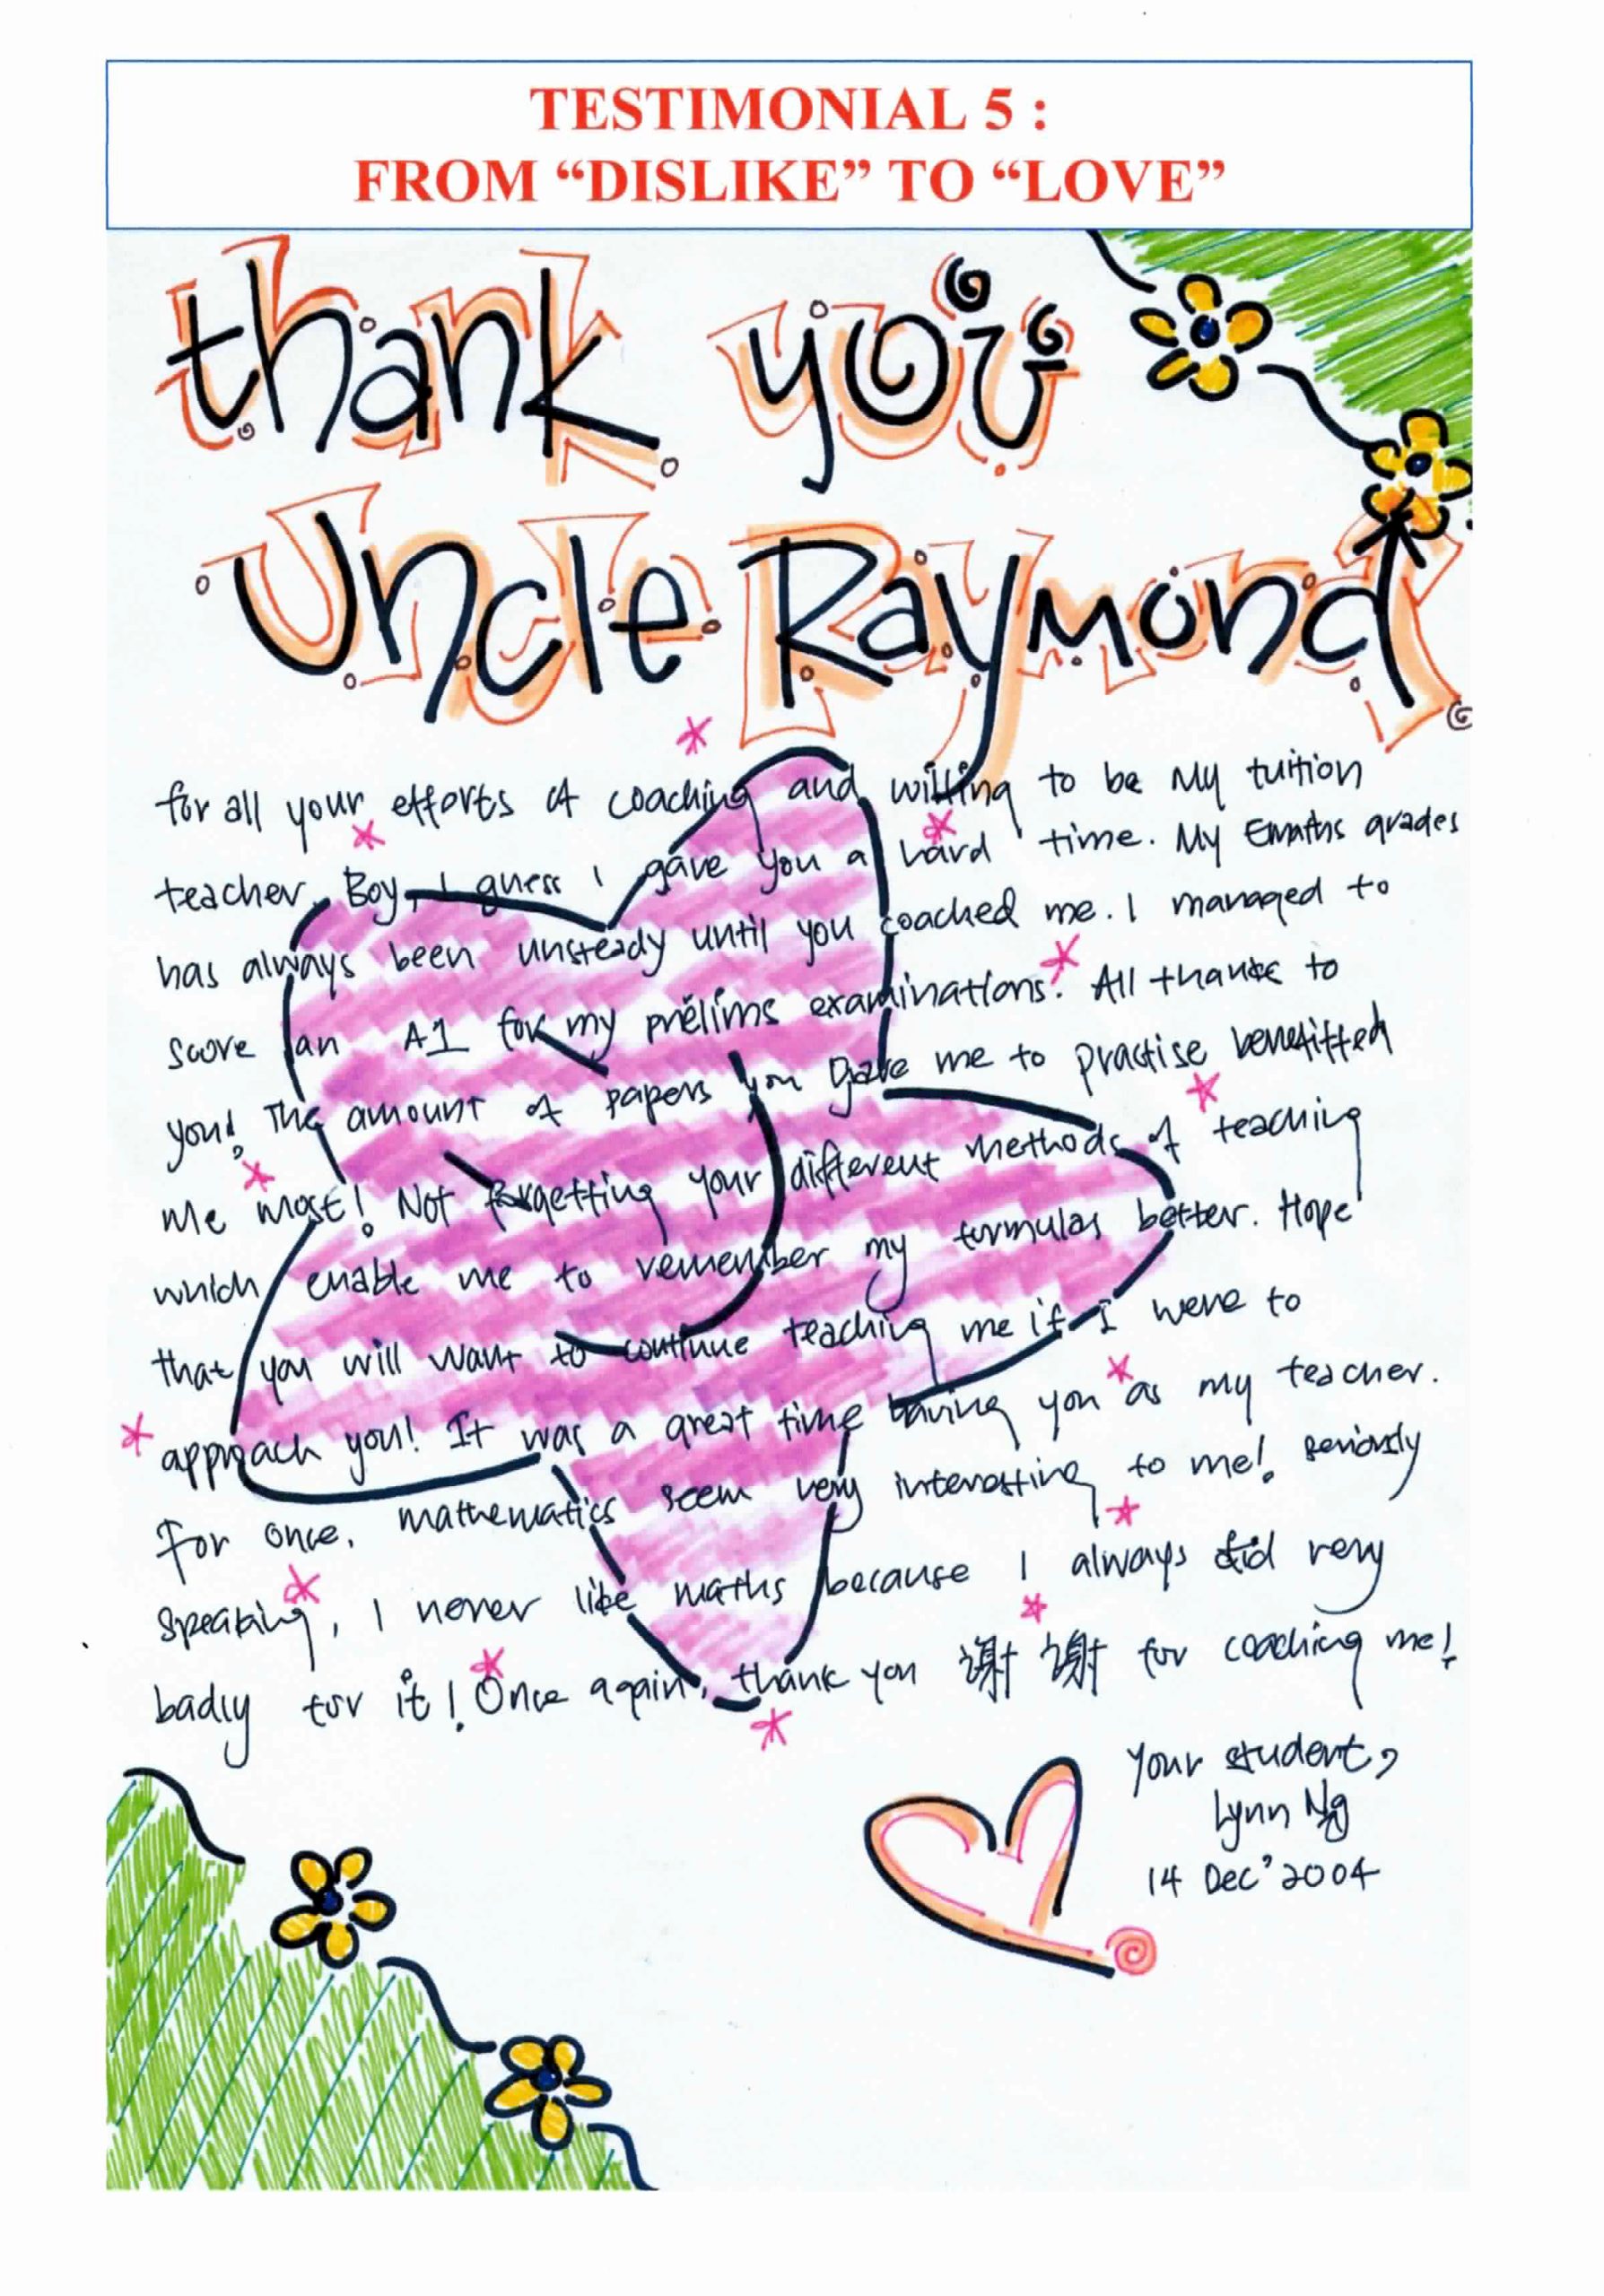 TESTIMONIAL 5 :
FROM “DISLIKE” TO “LOVE”
thank you
Uncle Raymond
for all your efforts of coaching and willing to be my tuition
teacher. Boy, I guess I gave you a hard time. My Emaths grades
has always been unsteady until you coached me. I managed to
score an A1 for my prelims examinations. All thanks to
you! The amount of papers you gave me to practise benefitted
me most! Not forgetting your different methods of teaching
which enable me to remember my formulas better. Hope
that you will want to continue teaching me if I were to
approach you! It was a great time having you as my teacher.
For once, mathematics seem very interesting to me! Seriously
speaking, I never like maths because I always did very
badly for it! Once again, thank you 谢谢 for coaching me!
Your student,
Lynn Ng
14 Dec' 2004